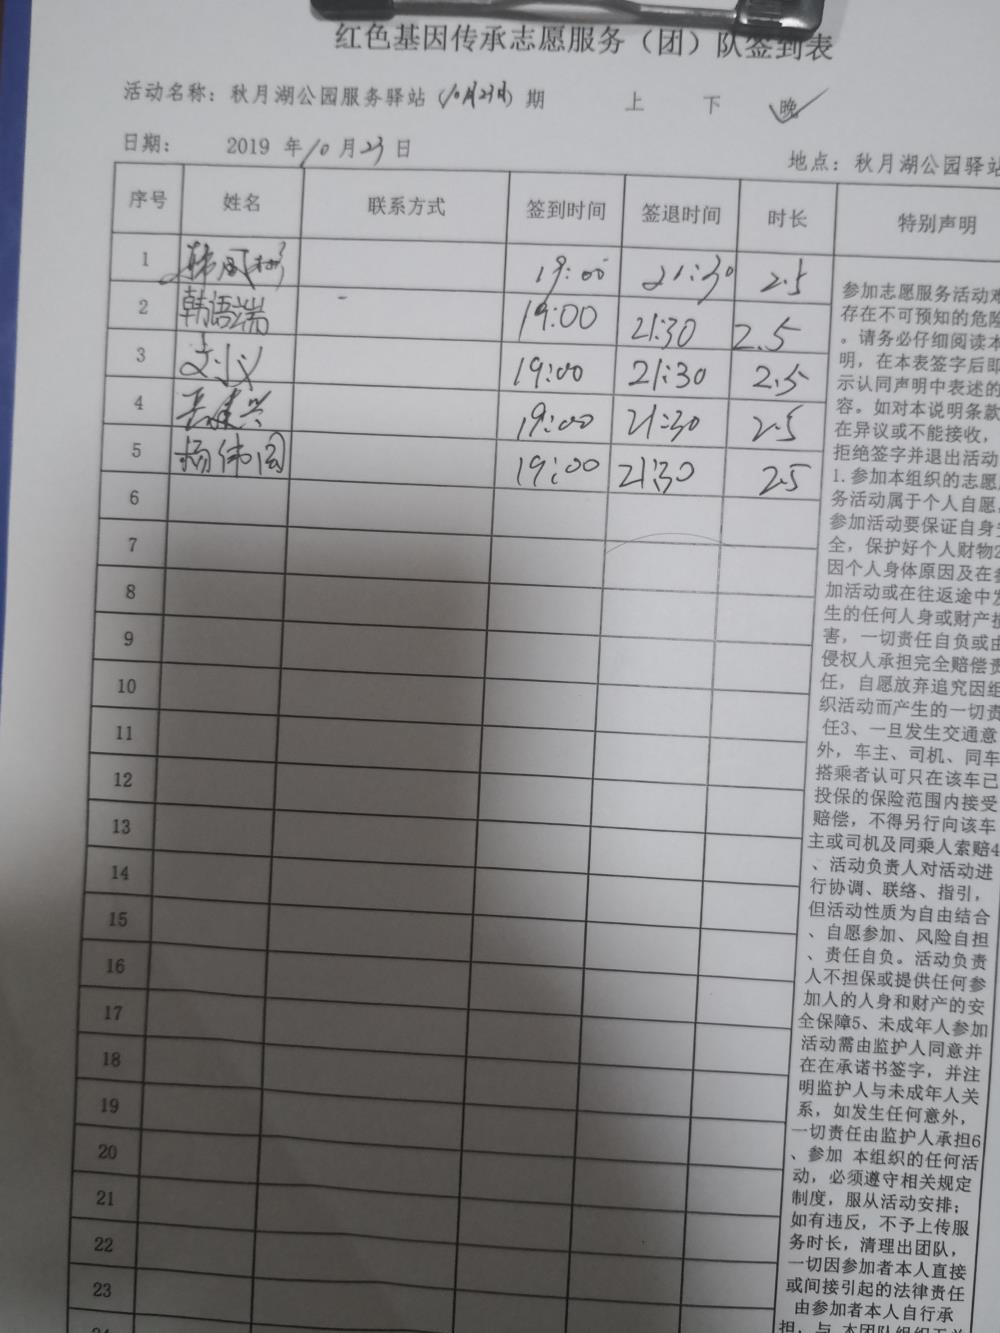 红色基因传承志愿服务（团）队签到表
活动名称：秋月湖公园服务驿站（10月23日）期 上 下 晚
日期： 2019 年 10 月 23 日
地点：秋月湖公园驿站
序号 姓名 联系方式 签到时间 签退时间 时长 特别声明
1 19:00 21:30 2.5
2 韩语端 19:00 21:30 2.5
3 19:00 21:30 2.5
4 19:00 21:30 2.5
5 杨伟国 19:00 21:30 2.5
6
7
8
9
10
11
12
13
14
15
16
17
18
19
20
21
22
23
24
参加志愿服务活动难
存在不可预知的危险
。请务必仔细阅读本
明，在本表签字后即
示认同声明中表述的
容。如对本说明条款
在异议或不能接收，
拒绝签字并退出活动
1.参加本组织的志愿
务活动属于个人自愿，
参加活动要保证自身
全，保护好个人财物2
因个人身体原因及在参
加活动或在往返途中发
生的任何人身或财产损
害，一切责任自负或由
侵权人承担完全赔偿责
任，自愿放弃追究因组
织活动而产生的一切责
任3、一旦发生交通意
外，车主、司机、同车
搭乘者认可只在该车已
投保的保险范围内接受
赔偿，不得另行向该车
主或司机及同乘人索赔4
、活动负责人对活动进
行协调、联络、指引，
但活动性质为自由结合
、自愿参加、风险自担
、责任自负。活动负责
人不担保或提供任何参
加人的人身和财产的安
全保障5、未成年人参加
活动需由监护人同意并
在在承诺书签字，并注
明监护人与未成年人关
系，如发生任何意外，
一切责任由监护人承担6
、参加 本组织的任何活
动，必须遵守相关规定
制度，服从活动安排；
如有违反，不予上传服
务时长，清理出团队，
一切因参加者本人直接
或间接引起的法律责任
由参加者本人自行承
担，与 本团队组织无关